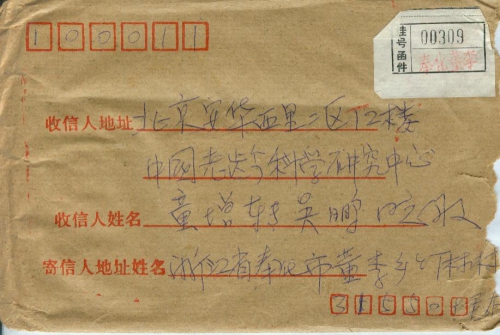 100011
挂号函件
00309
收信人地址 北京安华西里二区12楼
中国老龄科学研究中心
收信人姓名 童增转吴鹏 收
寄信人地址姓名 浙江省奉化市董李乡